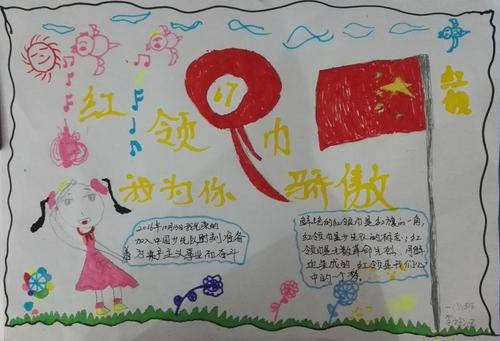 红领巾
67
我为你骄傲
红领
2016年10月
加入中国少先队时刻准备
着为共产主义事业而奋斗
鲜艳的红领巾是红旗的一角,
红领巾是少先队的标志,红
领巾是无数革命先烈,用鲜
血染成的,红领巾是我们心
中的一个梦。